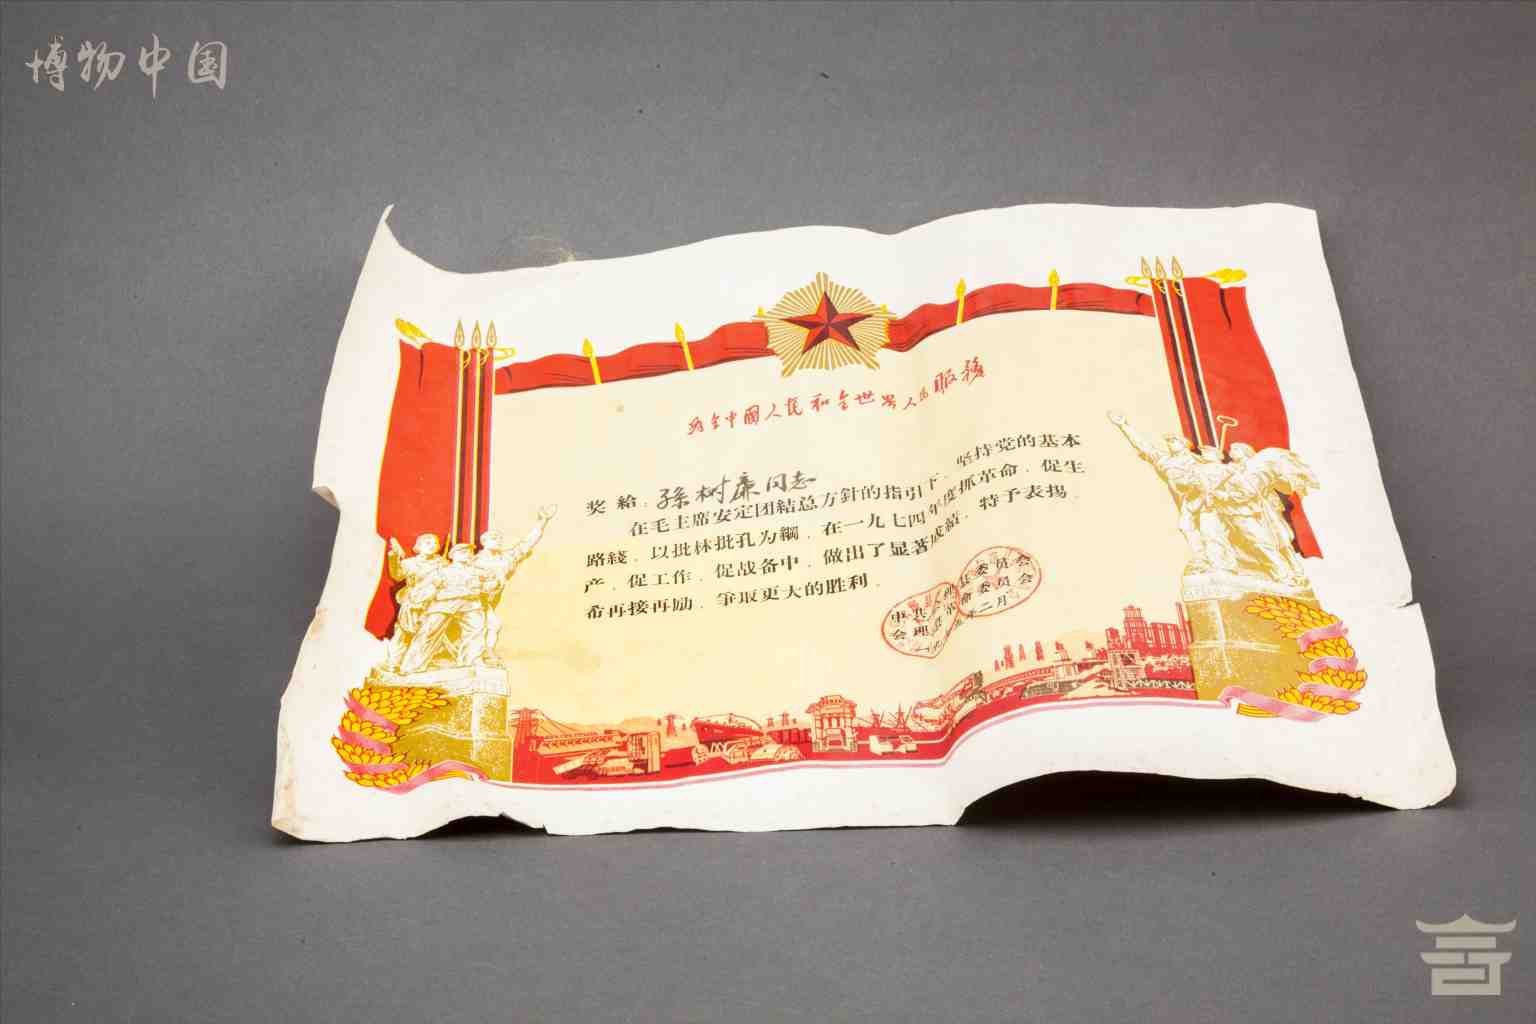 博物中国
为全中國人民和全世界人民服務
奖给：孫树廉同志
在毛主席安定团結总方針的指引下，坚持党的基本
路綫，以批林批孔为綱，在一九七四年度抓革命，促生
产，促工作，促战备中，做出了显著成績，特予表揚。
希再接再励，爭取更大的胜利。
中共会理县委员会
会理县革命委员会
一九七五年二月